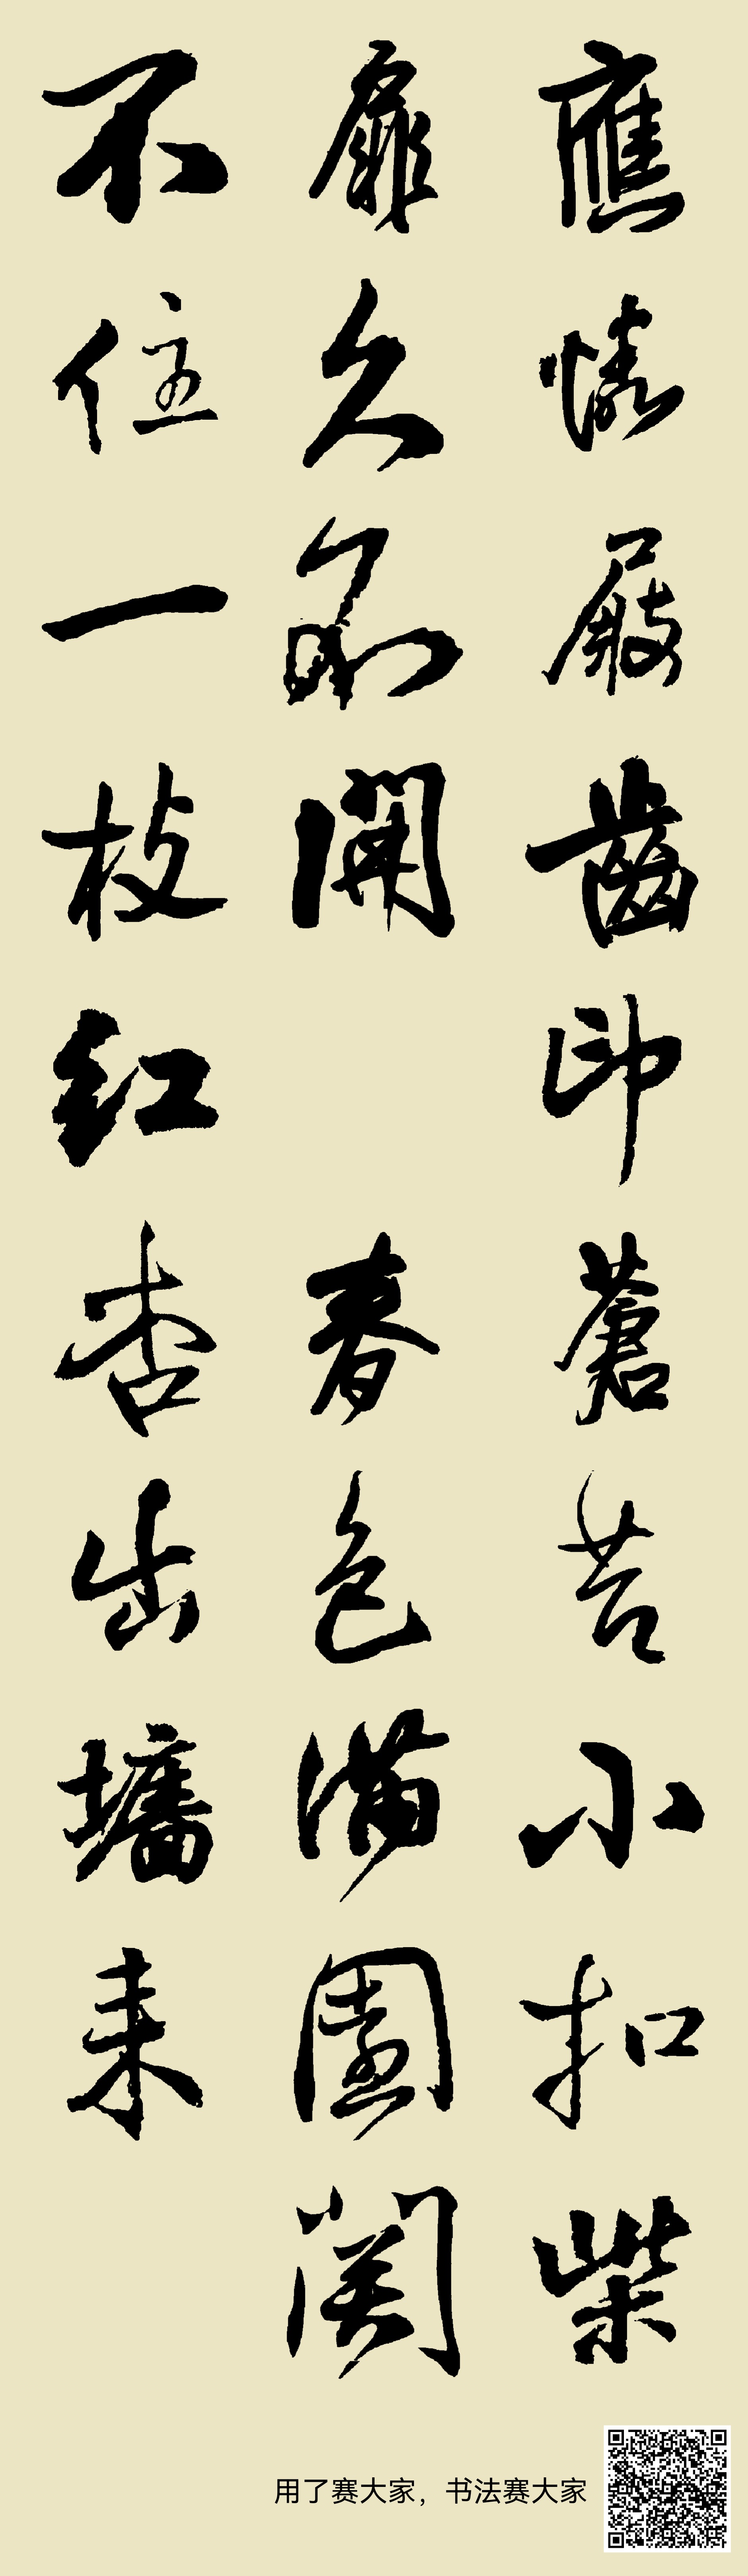 應憐屐齒印蒼苔小扣柴
扉久不開 春色滿園關
不住一枝紅杏出墻來
用了赛大家，书法赛大家